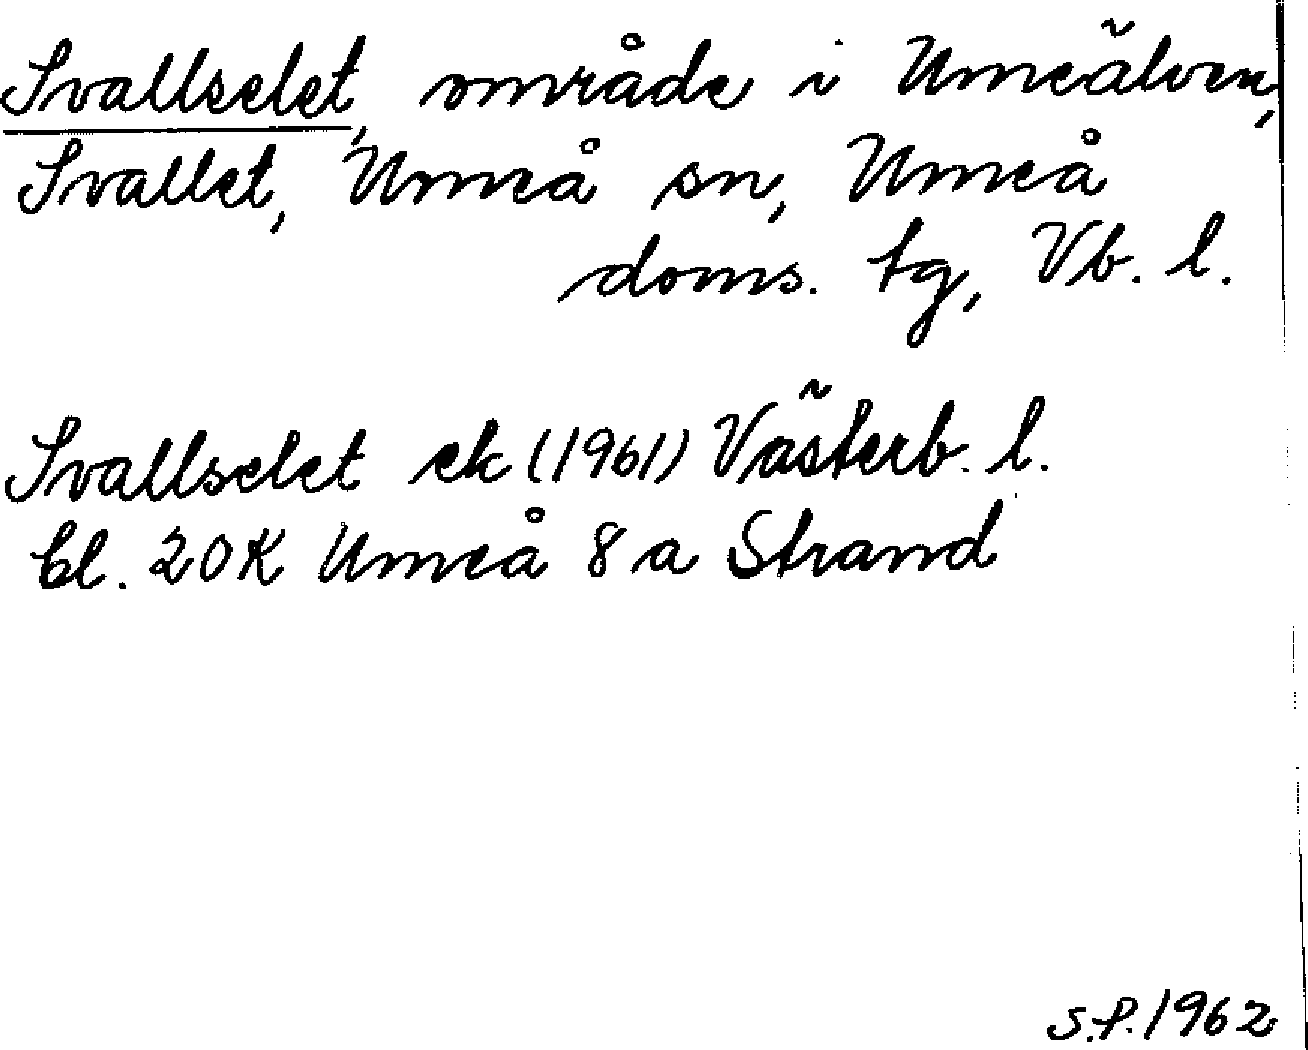 Svallselet, område i Umeälven,
Svallet, Umeå sn, Umeå
doms. tg, Vb. l.
Svallselet ek (1961) Västerb. l.
bl. 20K Umeå 8 a Strand
S.P. 1962